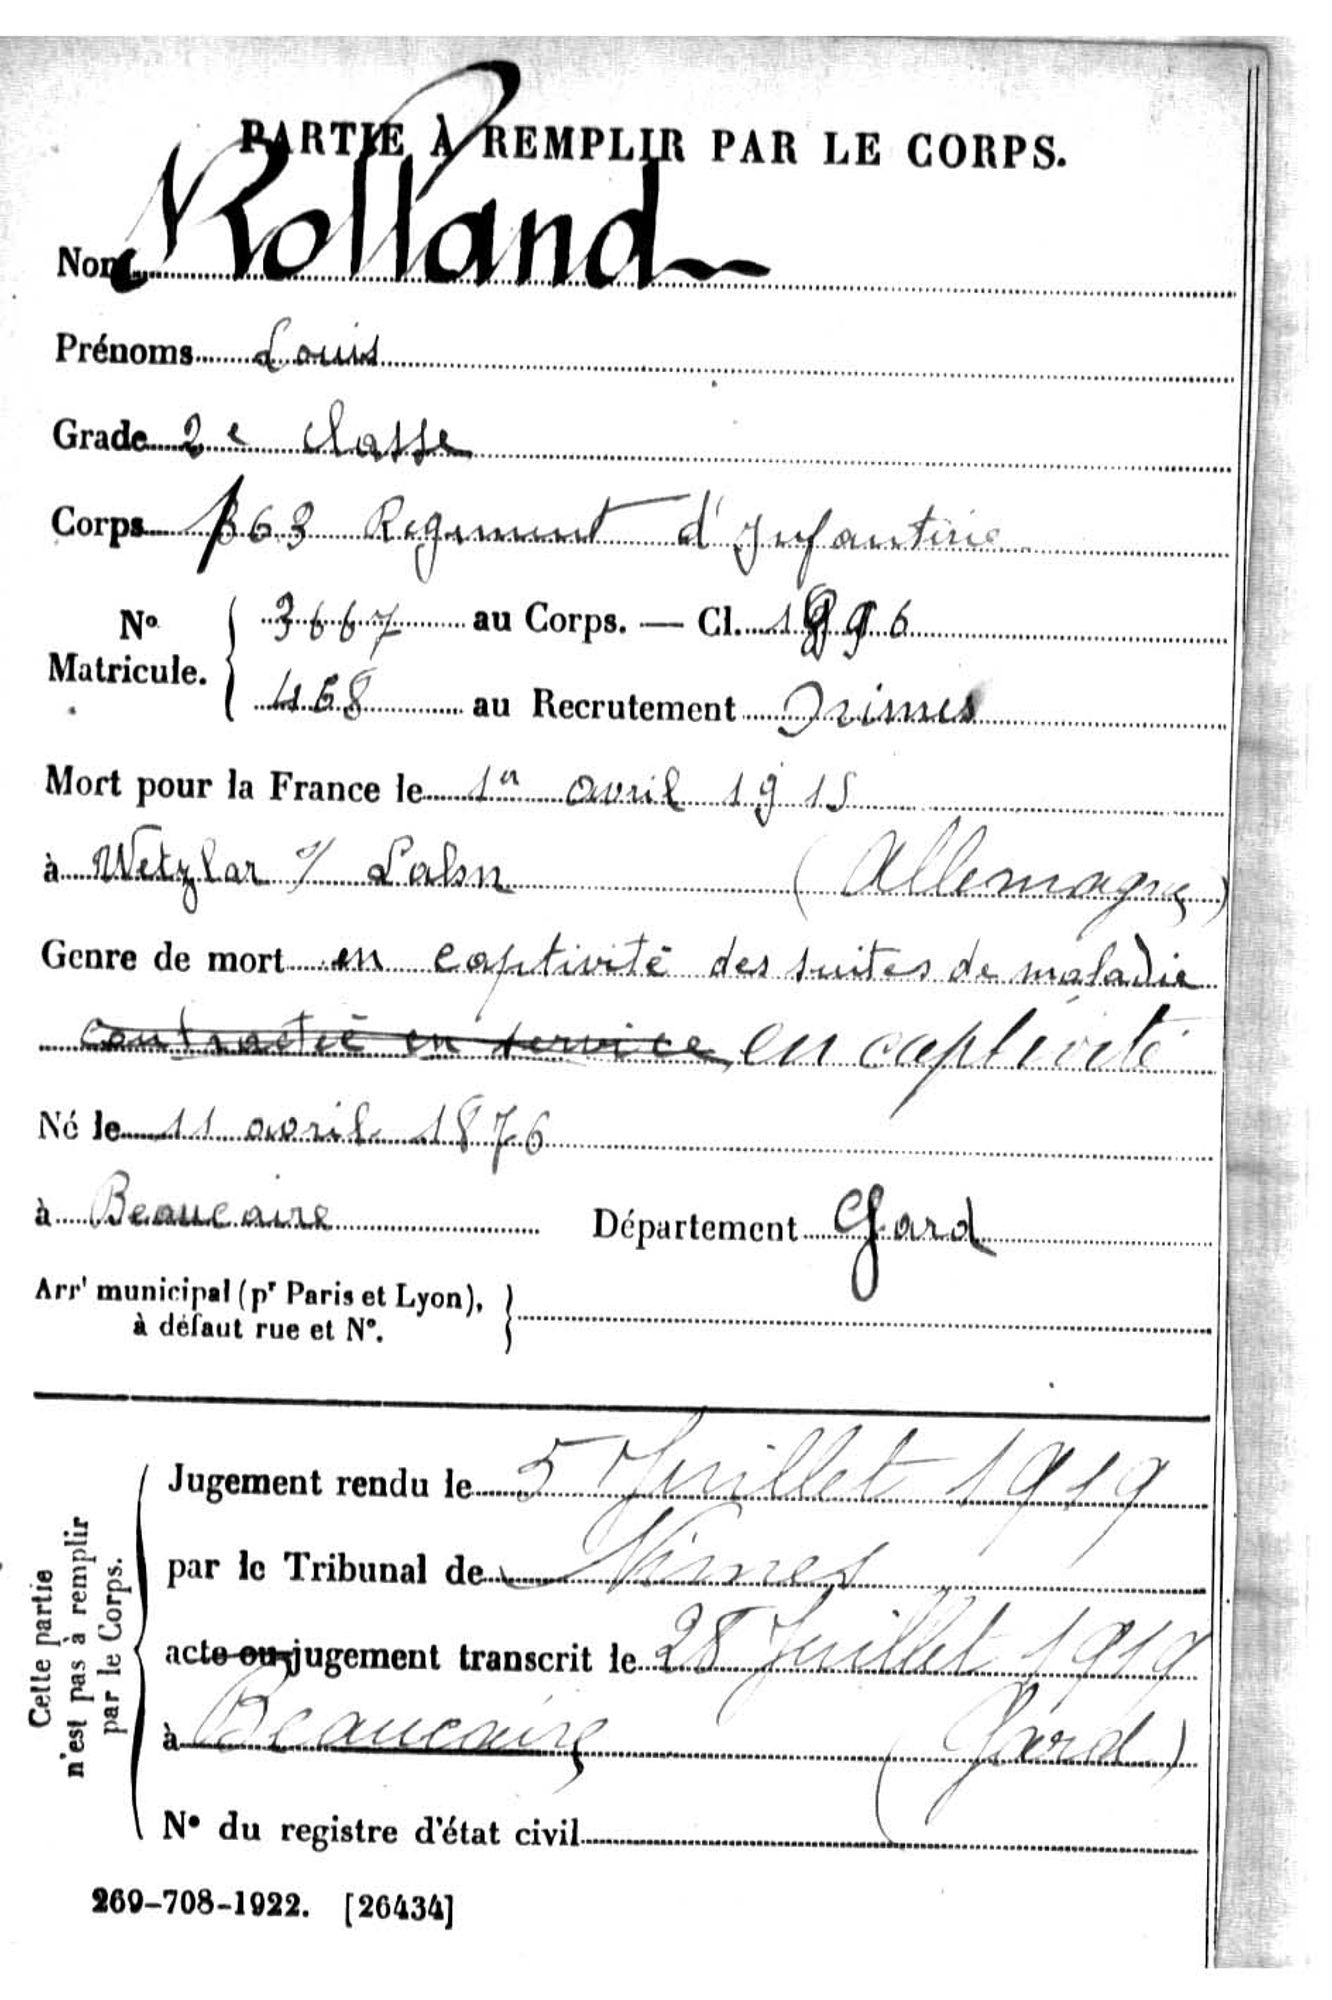 PARTIE À REMPLIR PAR LE CORPS.
Nom Rolland
Prénoms Louis
Grade 2e classe
Corps 163 Regiment d'Infanterie
No Matricule. 3667 au Corps. — Cl. 1896
468 au Recrutement Nimes
Mort pour la France le 1er avril 1915
à Wetzlar s/ Lahn (Allemagne)
Genre de mort en captivité des suites de maladie
contractée en service en captivité
Né le 11 avril 1876
à Beaucaire Département Gard
Arrt municipal (pr Paris et Lyon),
à défaut rue et N°.
Cette partie
n'est pas à remplir
par le Corps.
Jugement rendu le 5 Juillet 1919
par le Tribunal de Nimes
acte ou jugement transcrit le 28 Juillet 1919
à Beaucaire (Gard)
N° du registre d'état civil
269-708-1922. [26434]